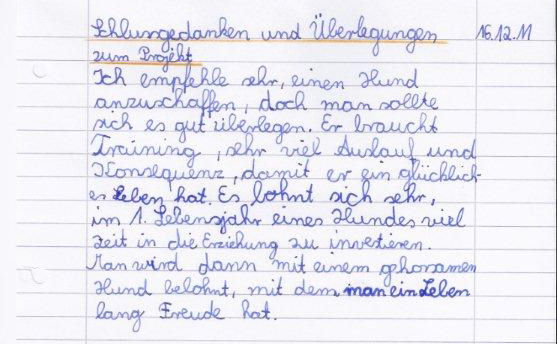 Schlussgedanken und Überlegungen 16.12.11
zum Projekt
Ich empfehle sehr, einen Hund
anzuschaffen, doch man sollte
sich es gut überlegen. Er braucht
Training, sehr viel Auslauf und
Konsequenz, damit er ein glücklich-
es Leben hat. Es lohnt sich sehr,
im 1. Lebensjahr eines Hundes viel
Zeit in die Erziehung zu investieren.
Man wird dann mit einem gehorsamen
Hund belohnt, mit dem man ein Leben
lang Freude hat.